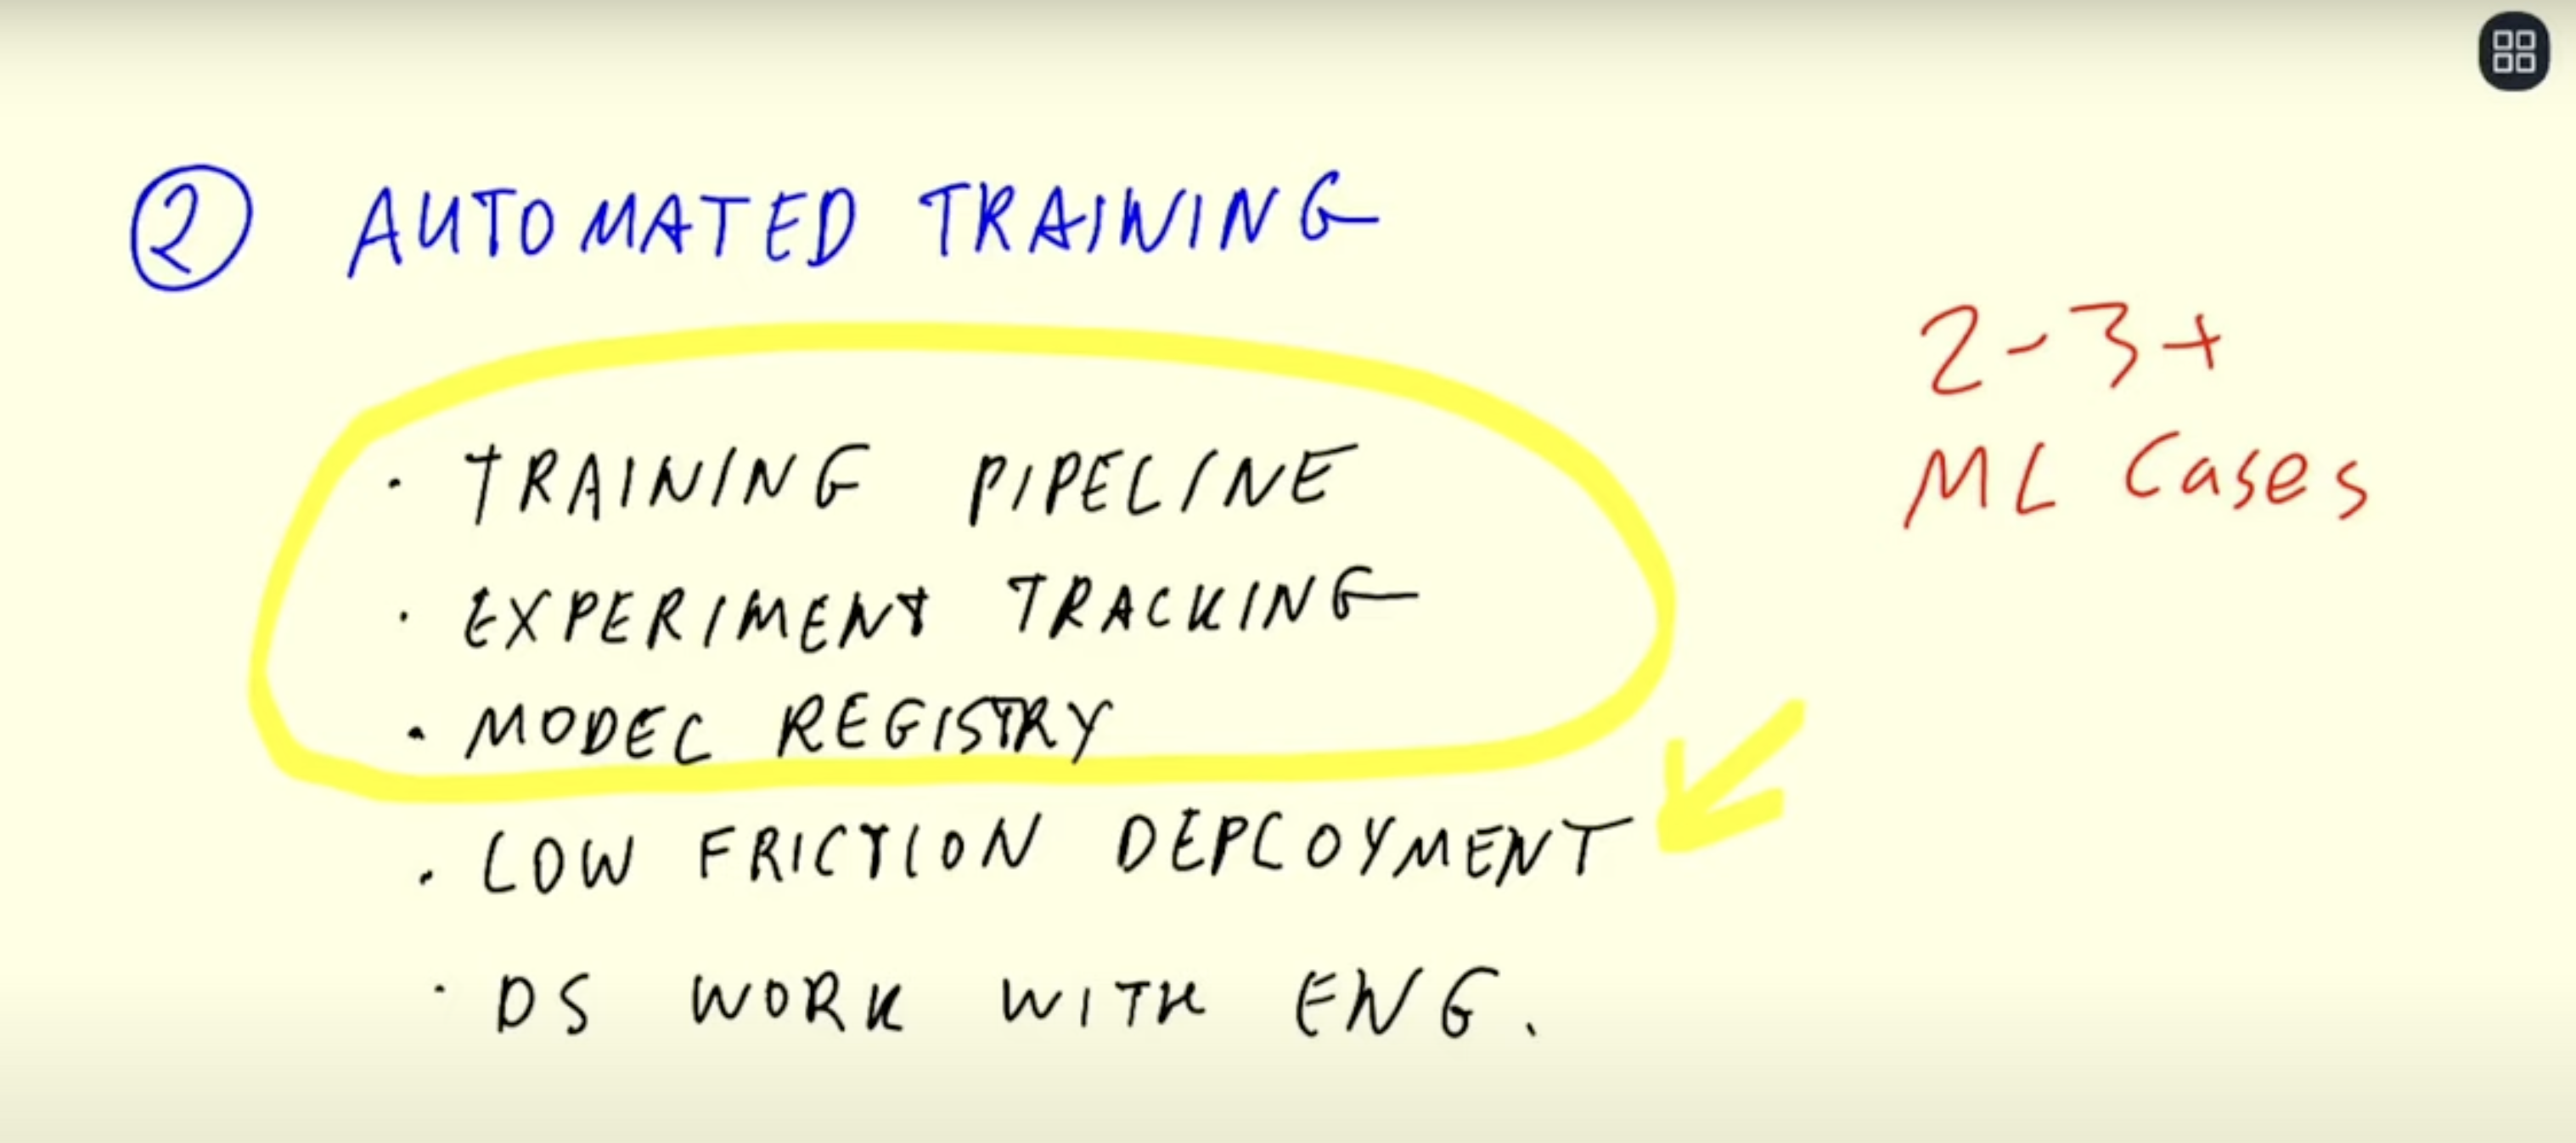 2 AUTOMATED TRAINING
2-3+
ML Cases
· TRAINING PIPELINE
· EXPERIMENT TRACKING
· MODEL REGISTRY
· LOW FRICTION DEPLOYMENT
· DS WORK WITH ENG.